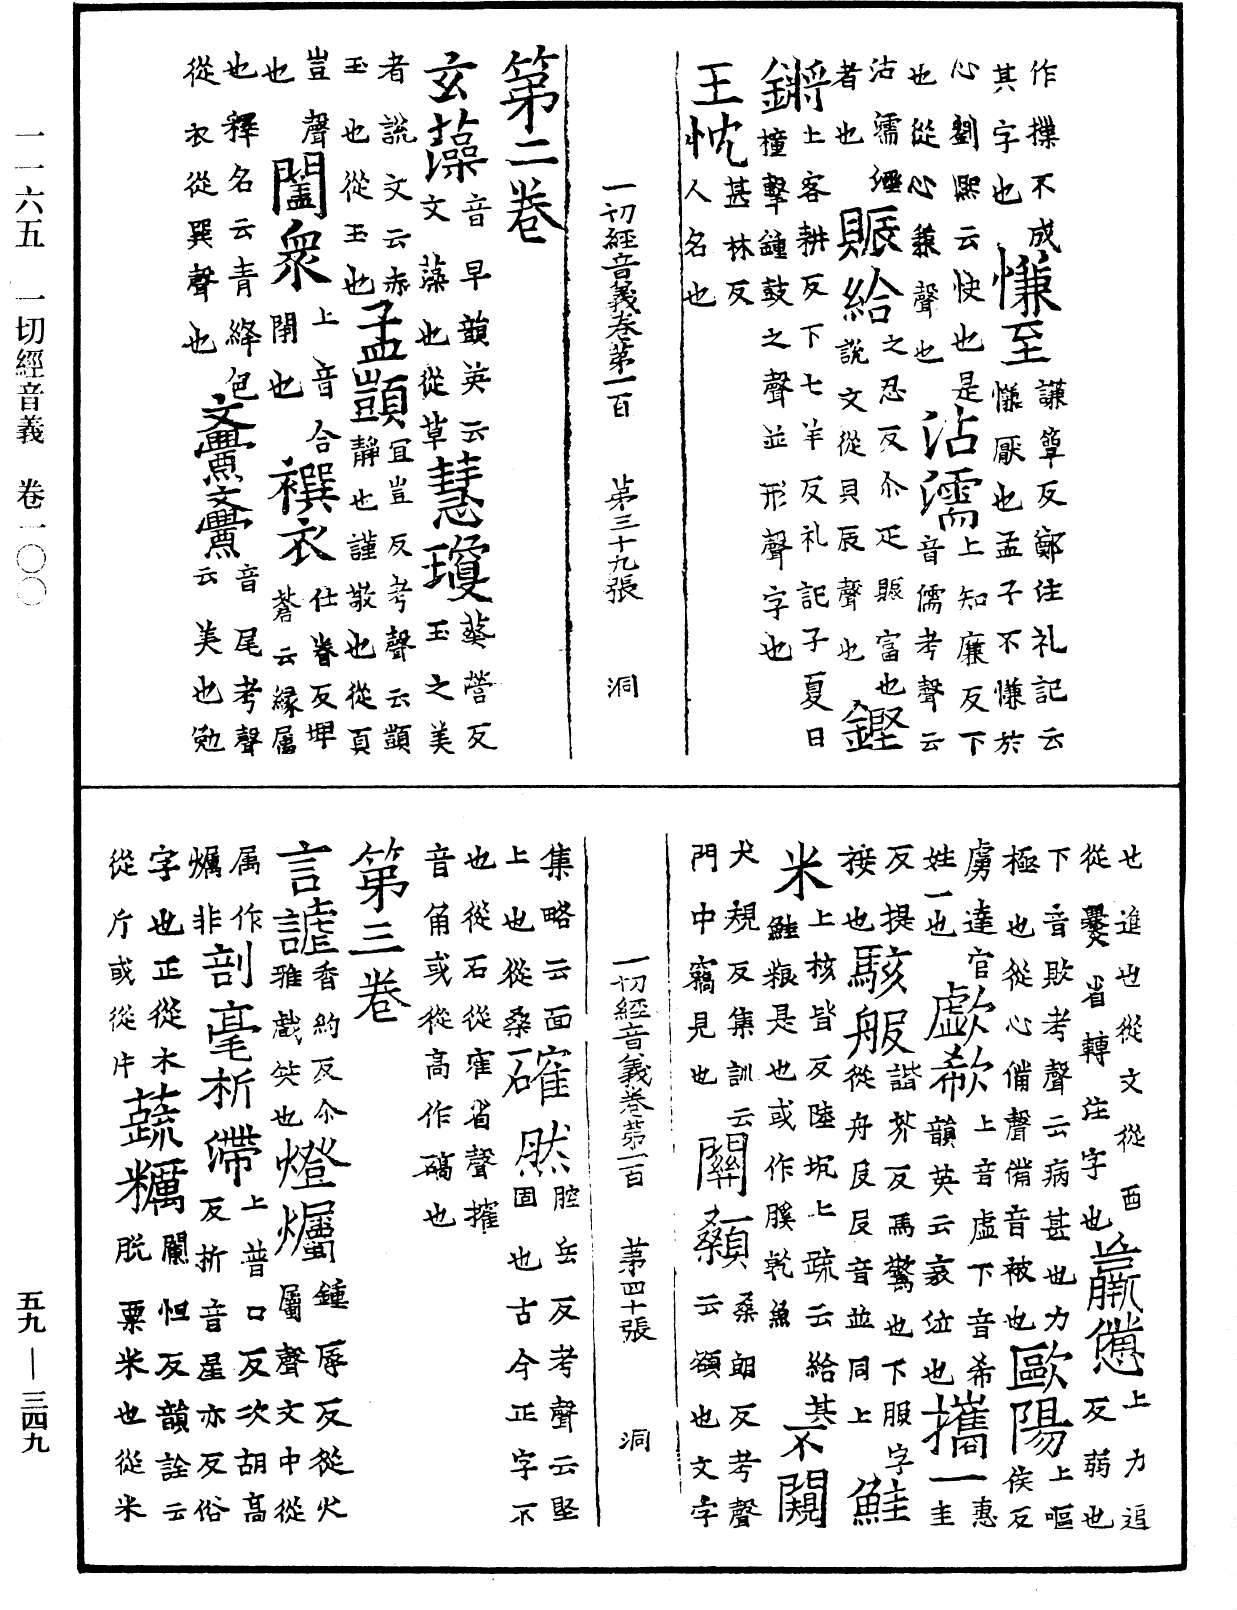 作㩧不成慊至謙簟反鄭注礼記云
其字也慊厭也孟子不慊於
心劉熙云快也是沾濡上知廉反下
也從心兼聲也音儒考聲云
沾濡濕賑給之忍反尒疋賑富也鏗
者也說文從貝辰聲也
鏘上客耕反下七羊反礼記子夏曰
撞擊鐘鼓之聲並形聲字也
王忱甚林反
人名也
一切經音義卷第一百 第三十九張 洞
第二卷
玄藻音早韻英云慧瓊葵營反
文藻也從草玉之美
者說文云赤孟顗宜豈反考聲云顗
玉也從玉也靜也謹敬也從頁
豈聲闔衆上音合襈衣仕眷反埤
也閇也蒼云緣属
也釋名云青絳色亹亹音尾考聲
從衣從巽聲也云美也勉
也進也從文從酉羸憊上力追
從爨省轉注字也反弱也
下音敗考聲云病甚也力歐陽上嘔
極也從心備聲備音被也侯反
虜達官歔欷上音虛下音希攜一惠
姓一也韻英云哀泣也圭
反提駭舩諧芥反馬驚也下服字鮭
接也從舟𠬝𠬝音並同上
米上核皆反陸坑上疏云給其不闚
鮭粮是也或作膎乾魚
犬規反集訓云闗顙桑朗反考聲
門中竊見也云頟也文字
一切經音義卷第一百 第四十張 洞
集略云面確然腔岳反考聲云堅
上也從桑固也古今正字不
也從石從隺省聲搉
音角或從高作碻也
第三卷
言謔香約反尒燈爥鍾辱反從火
雅戲笑也屬聲文中從
属作剖毫析滯上普口反次胡高
爥非反折音星亦反俗
字也正從木蔬糲闌怛反韻詮云
從斤或從片脫粟米也從米
一一六五 一切經音義 卷一〇〇
五九—三四九